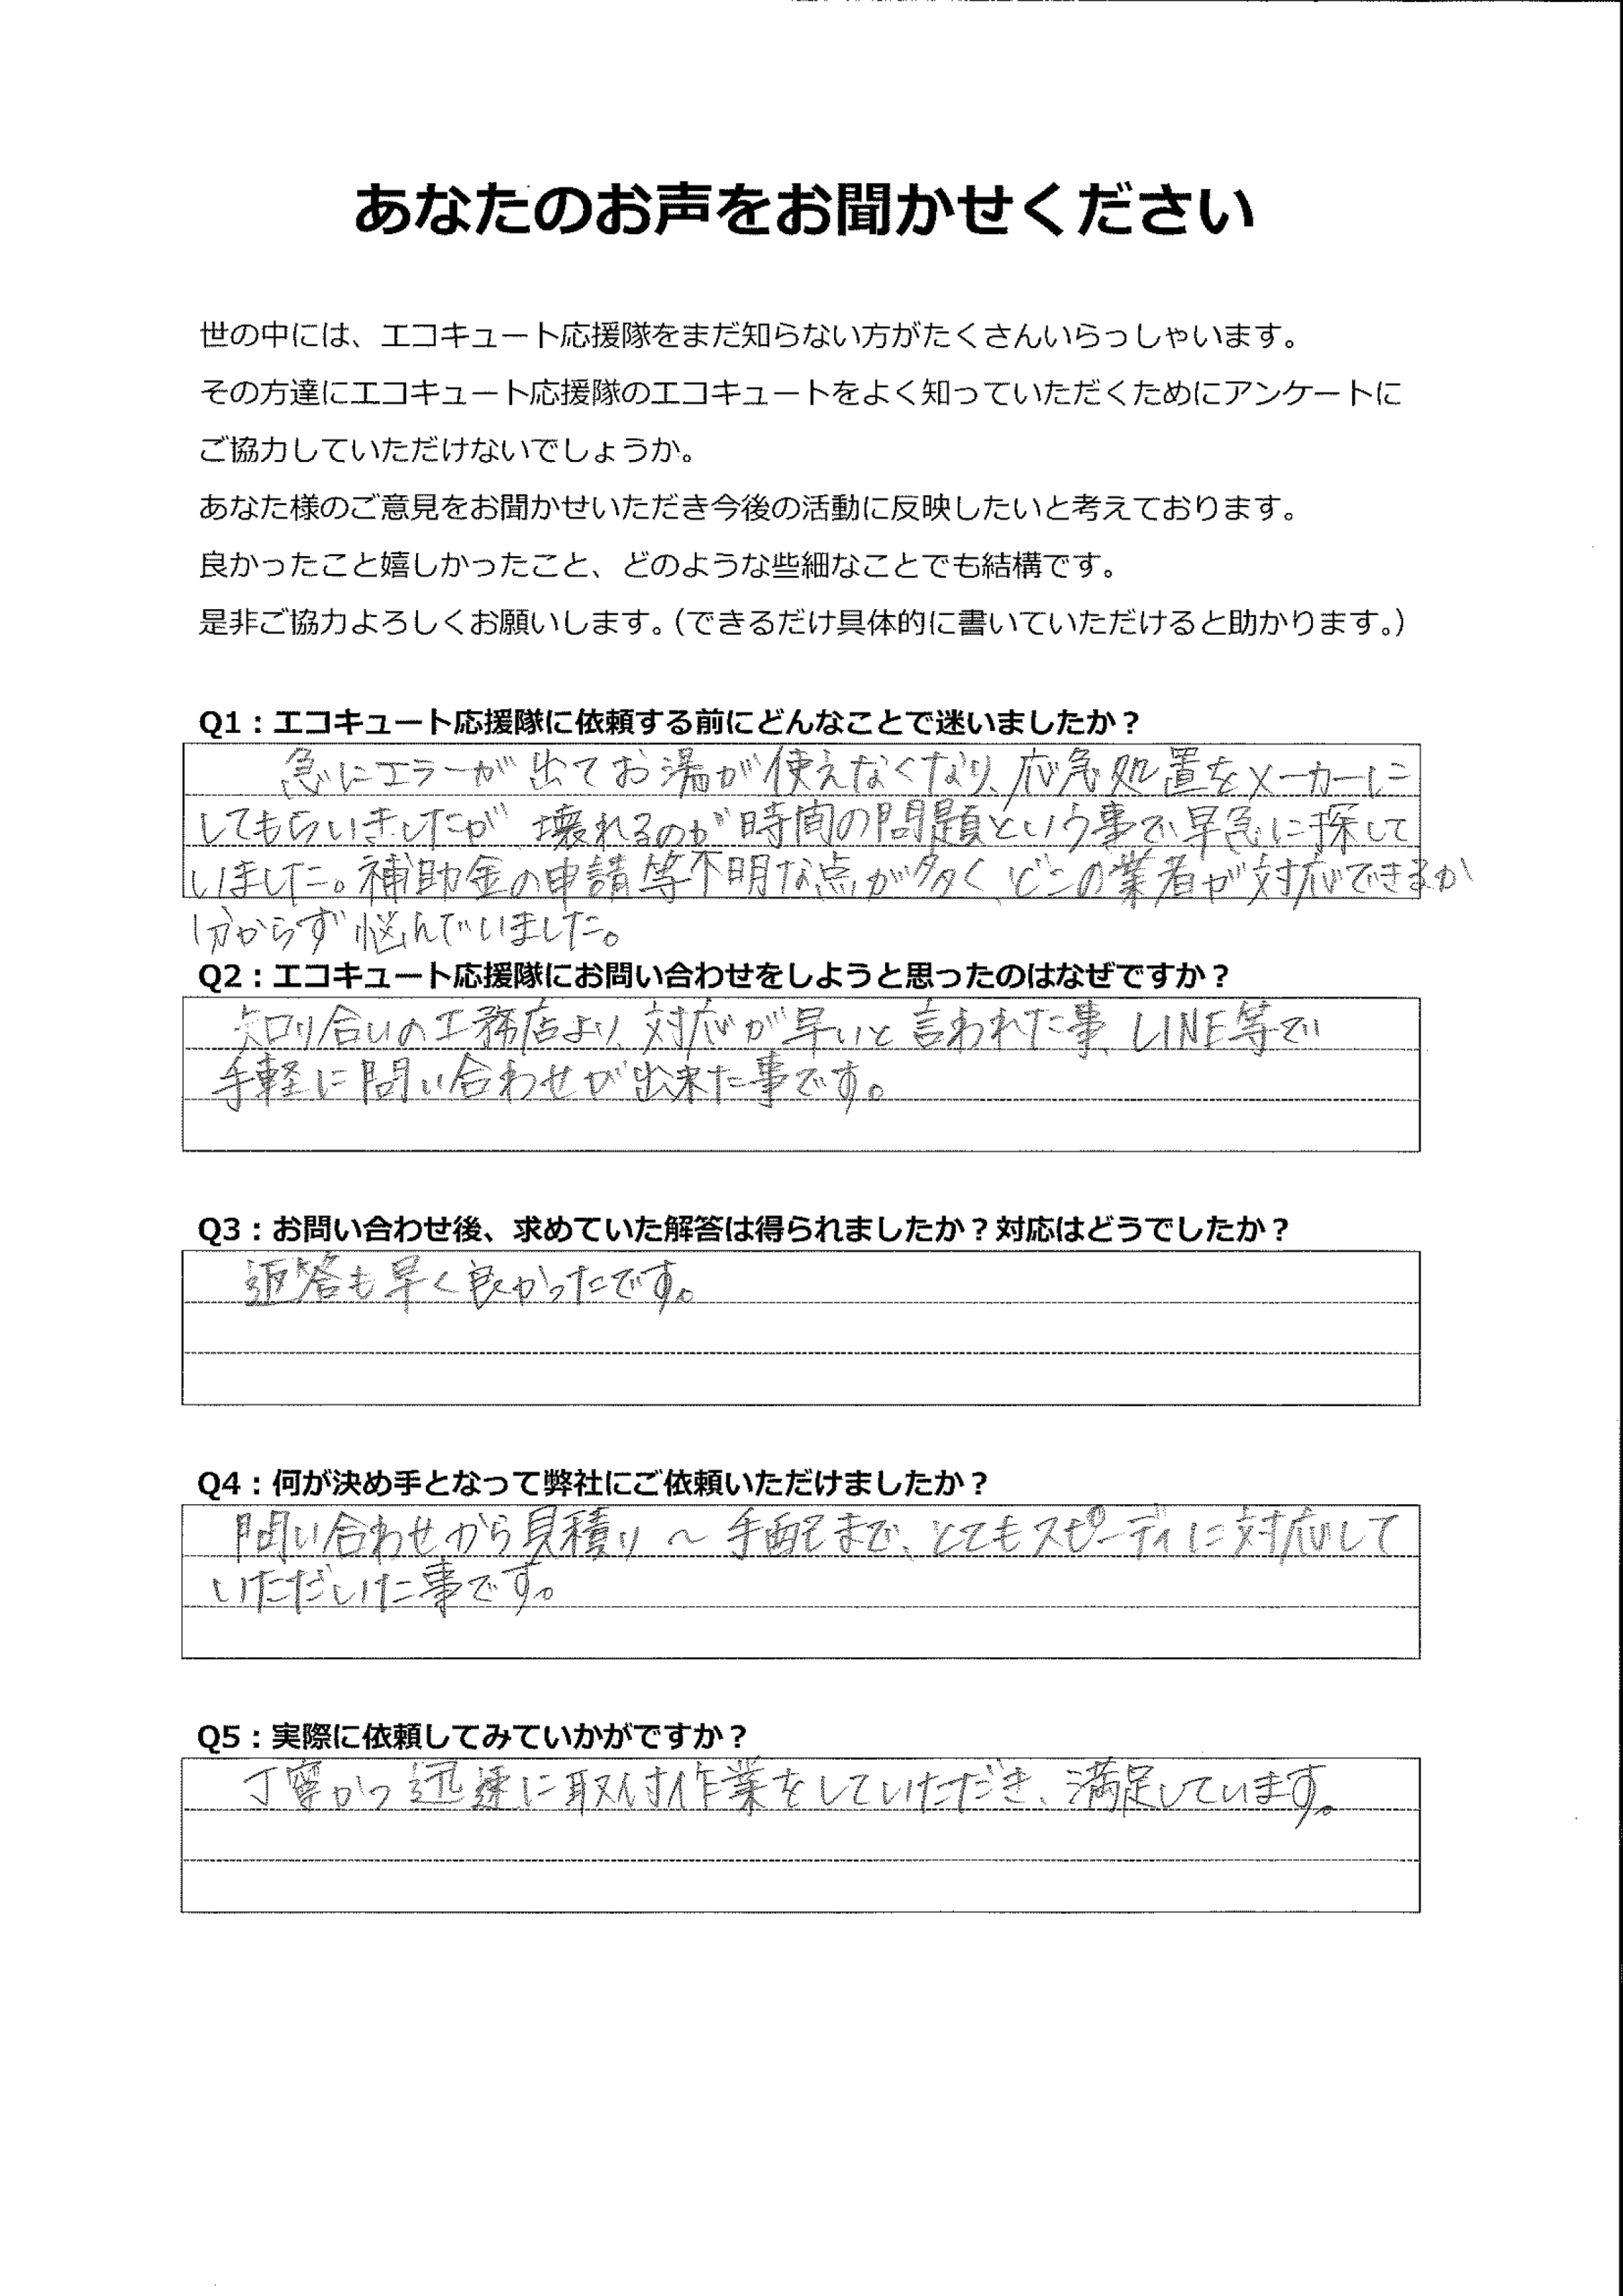 あなたのお声をお聞かせください
世の中には、エコキュート応援隊をまだ知らない方がたくさんいらっしゃいます。
その方達にエコキュート応援隊のエコキュートをよく知っていただくためにアンケートに
ご協力していただけないでしょうか。
あなた様のご意見をお聞かせいただき今後の活動に反映したいと考えております。
良かったこと嬉しかったこと、どのような些細なことでも結構です。
是非ご協力よろしくお願いします。（できるだけ具体的に書いていただけると助かります。）
Q1：エコキュート応援隊に依頼する前にどんなことで迷いましたか？
急にエラーが出てお湯が使えなくなり、応急処置をメーカーに
してもらいましたが、壊れるのが時間の問題という事で早急に探して
いました。補助金の申請等不明な点が多く、どこの業者が対応できるか
分からず悩んでいました。
Q2：エコキュート応援隊にお問い合わせをしようと思ったのはなぜですか？
知り合いの工務店より、対応が早いと言われた事、LINE等で
手軽に問い合わせが出来た事です。
Q3：お問い合わせ後、求めていた解答は得られましたか？対応はどうでしたか？
返答も早く良かったです。
Q4：何が決め手となって弊社にご依頼いただけましたか？
問い合わせから見積り～手配まで、とてもスピーディに対応して
いただいた事です。
Q5：実際に依頼してみていかがですか？
丁寧かつ迅速に取付作業をしていただき、満足しています。